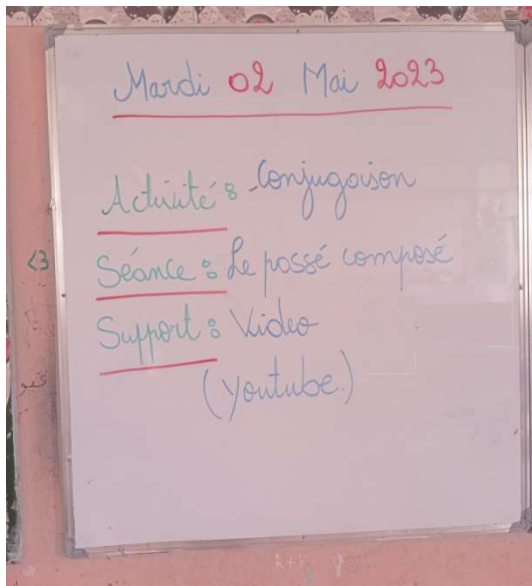 Mardi 02 Mai 2023
Activité : Conjugaison
Séance : Le passé composé
<3
Support : Video
(Youtube.)